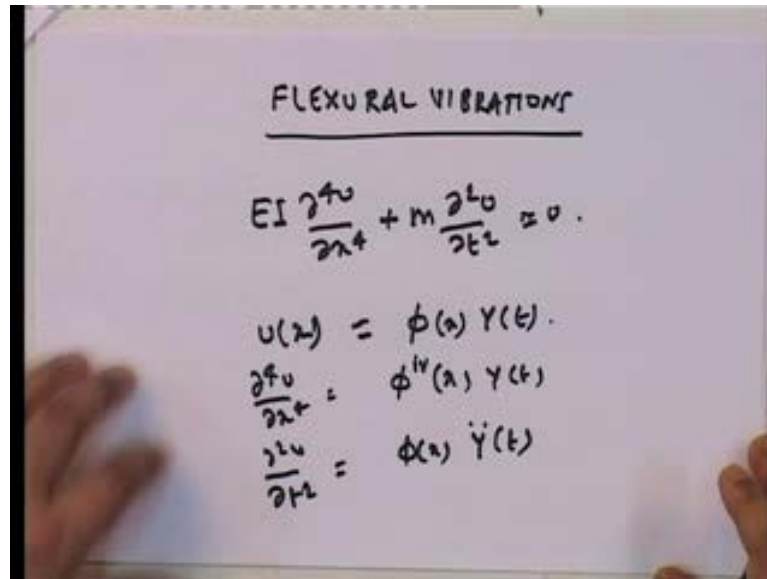 FLEXURAL VIBRATIONS
EI ∂⁴υ/∂x⁴ + m ∂²υ/∂t² = 0.
υ(x) = φ(x) Y(t).
∂⁴υ/∂x⁴ = φⁱᵛ(x) Y(t)
∂²υ/∂t² = φ(x) Ÿ(t)